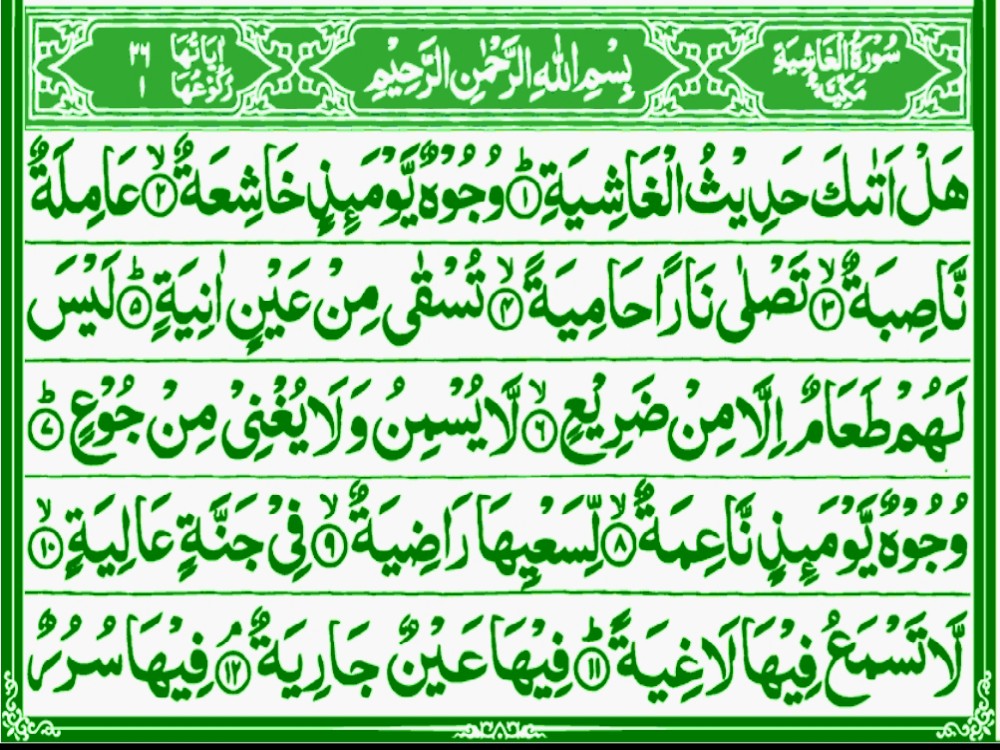 سُوْرَةُ الْغَاشِيَةِ مَكِّيَّةٌ بِسْمِ اللهِ الرَّحْمٰنِ الرَّحِيْمِ اٰيَاتُهَا ٢٦ رُكُوْعُهَا ١
هَلْ اَتٰىكَ حَدِيْثُ الْغَاشِيَةِ ؕ﴿۱﴾ وُجُوْهٌ يَّوْمَىِٕذٍ خَاشِعَةٌ ۙ﴿۲﴾ عَامِلَةٌ
نَّاصِبَةٌ ۙ﴿۳﴾ تَصْلٰى نَارًا حَامِيَةً ۙ﴿۴﴾ تُسْقٰى مِنْ عَيْنٍ اٰنِيَةٍ ؕ﴿۵﴾ لَيْسَ
لَهُمْ طَعَامٌ اِلَّا مِنْ ضَرِيْعٍ ۙ﴿۶﴾ لَّا يُسْمِنُ وَلَا يُغْنِىْ مِنْ جُوْعٍ ؕ﴿۷﴾
وُجُوْهٌ يَّوْمَىِٕذٍ نَّاعِمَةٌ ۙ﴿۸﴾ لِّسَعْيِهَا رَاضِيَةٌ ۙ﴿۹﴾ فِىْ جَنَّةٍ عَالِيَةٍ ۙ﴿۱۰﴾
لَّا تَسْمَعُ فِيْهَا لَاغِيَةً ؕ﴿۱۱﴾ فِيْهَا عَيْنٌ جَارِيَةٌ ۘ﴿۱۲﴾ فِيْهَا سُرُرٌ